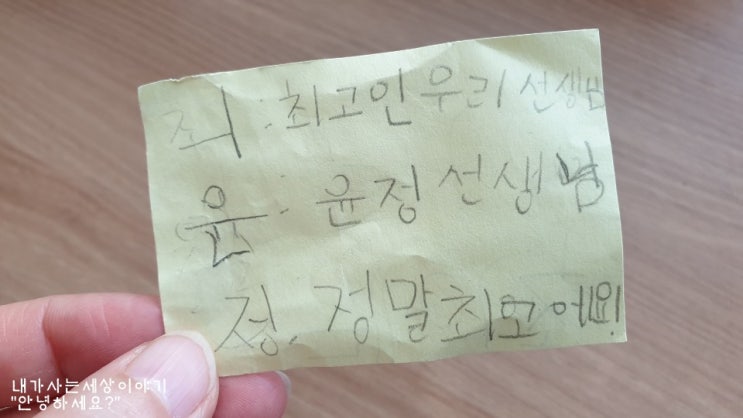 최 : 최고인 우리 선생님
윤 : 윤정 선생님
정. 정말 최고에요!
내가사는세상이야기
"안녕하세요?"